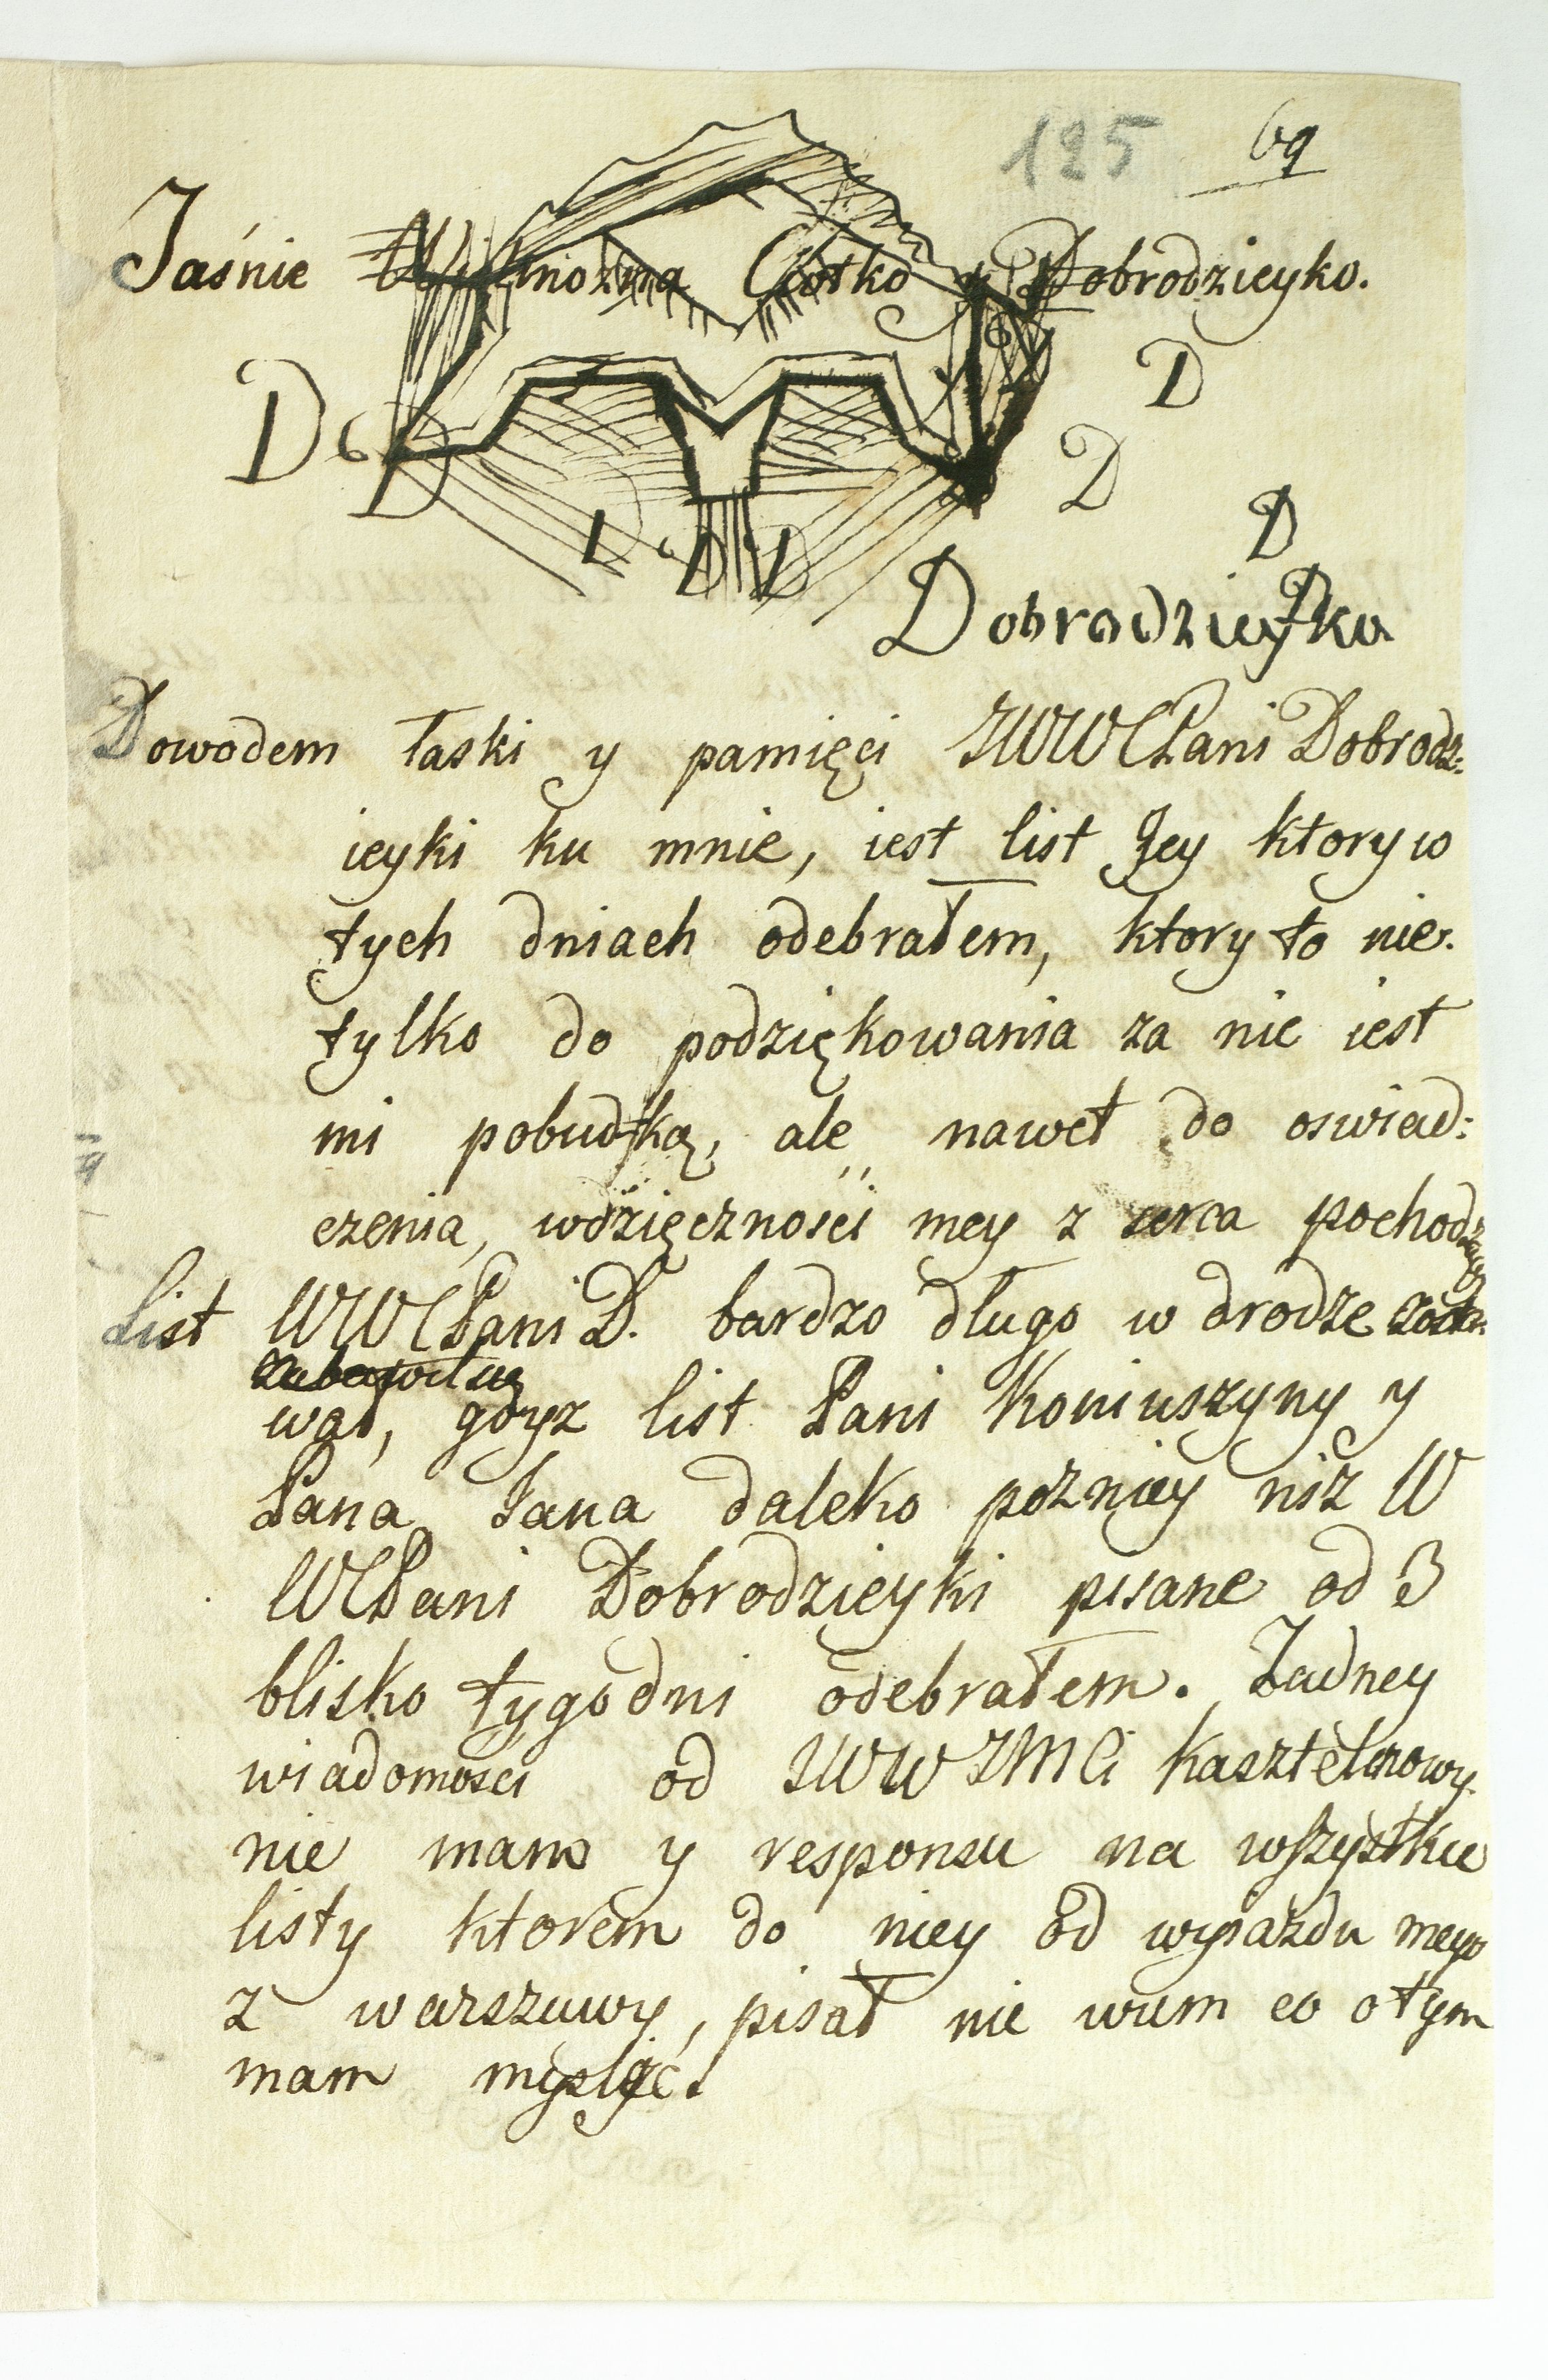 125 69
Jaśnie Wielmożna Ciotko y Dobrodzieyko.
D D D
D D
D D D D
Dobrodzieyko
Dowodem łaski y pamięci JWWCPani Dobrodz:
ieyki ku mnie, iest list Jey ktory w
tych dniach odebrałem, ktory to nie.
tylko do podziękowania za nie iest
mi pobudką, ale nawet do oswiad:
czenia, wdzięcznosci mey z serca pochodzącey
List WWCPani D. bardzo długo w drodze
wał, gdyz list Pani Koniuszyny y
Pana Jana daleko pozniey niz W
WCPani Dobrodzieyki pisane od 3
blisko tygodni odebrałem. Zadney
wiadomosci od JWWJMCi Kasztelanowy
nie mam y responsu na wszystkie
listy ktorem do niey od wyiazdu mego
z warszawy, pisał nie wiem co o tym
mam myslić.